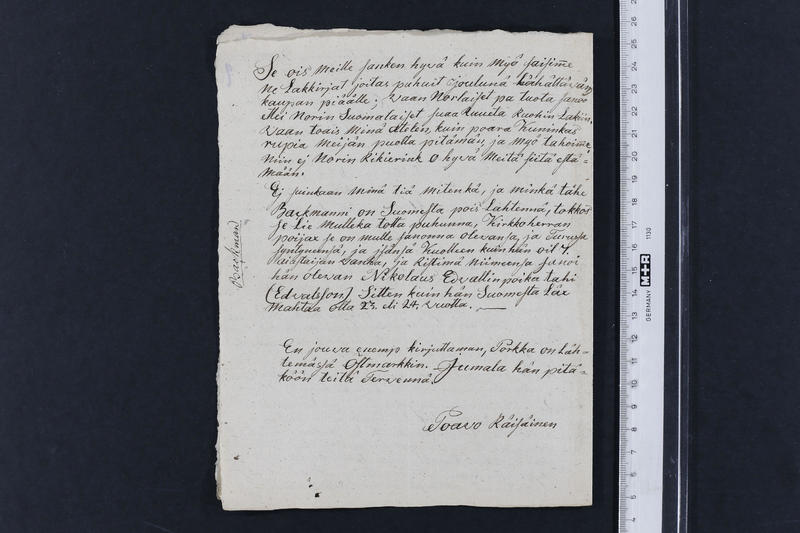 Se ois meille sanken hyvä kuin myö saisime
ne Lakkirjat joitas puhuit Jouluna
kaupan päälle; vaan Norlaiset pa tuota sanoo
Ei Norin Suomalaiset saa Ruveta Ruohin Lakiin.
vaan toais minä Attelen, kuin poara Kuninkas
rupia meijän puolta pitämän, ja myö tahoime,
Niin ej Norin Rikierink o hyvä meitä siitä estä-
mään.
Ej suinkaan minä tiä mitenkä, ja minkä tähe
Backmanni on Suomesta pois Lahtennä, tokkos
se Lie mulleka totta puhunna, Kirkkoherran
poijax se on mulle sanonna olevansa, ja Turussa
syntyneensä, ja isänsä Kuolleen kuin hän oil 4.
vanha, ja Ristimä niimeensä sanoi
hän olevan Nikolaus Edvattinpoika tahi
(Edvatsson) Sitten kuin hän Suomesta Läx
Mahtaa olla 23. eli 24. vuotta. —
Backman
En jouva enemp kirjuttaman, Porkka on Läh-
temässä Östmarkkin. Jumala hän pitä-
köön teitä Tervennä.
Poavo Räisäinen
26
25
23
22
21
20
19
18
17
16
15
14
13
12
11
10
9
8
7
6
5
4
1130
M+R
GERMANY